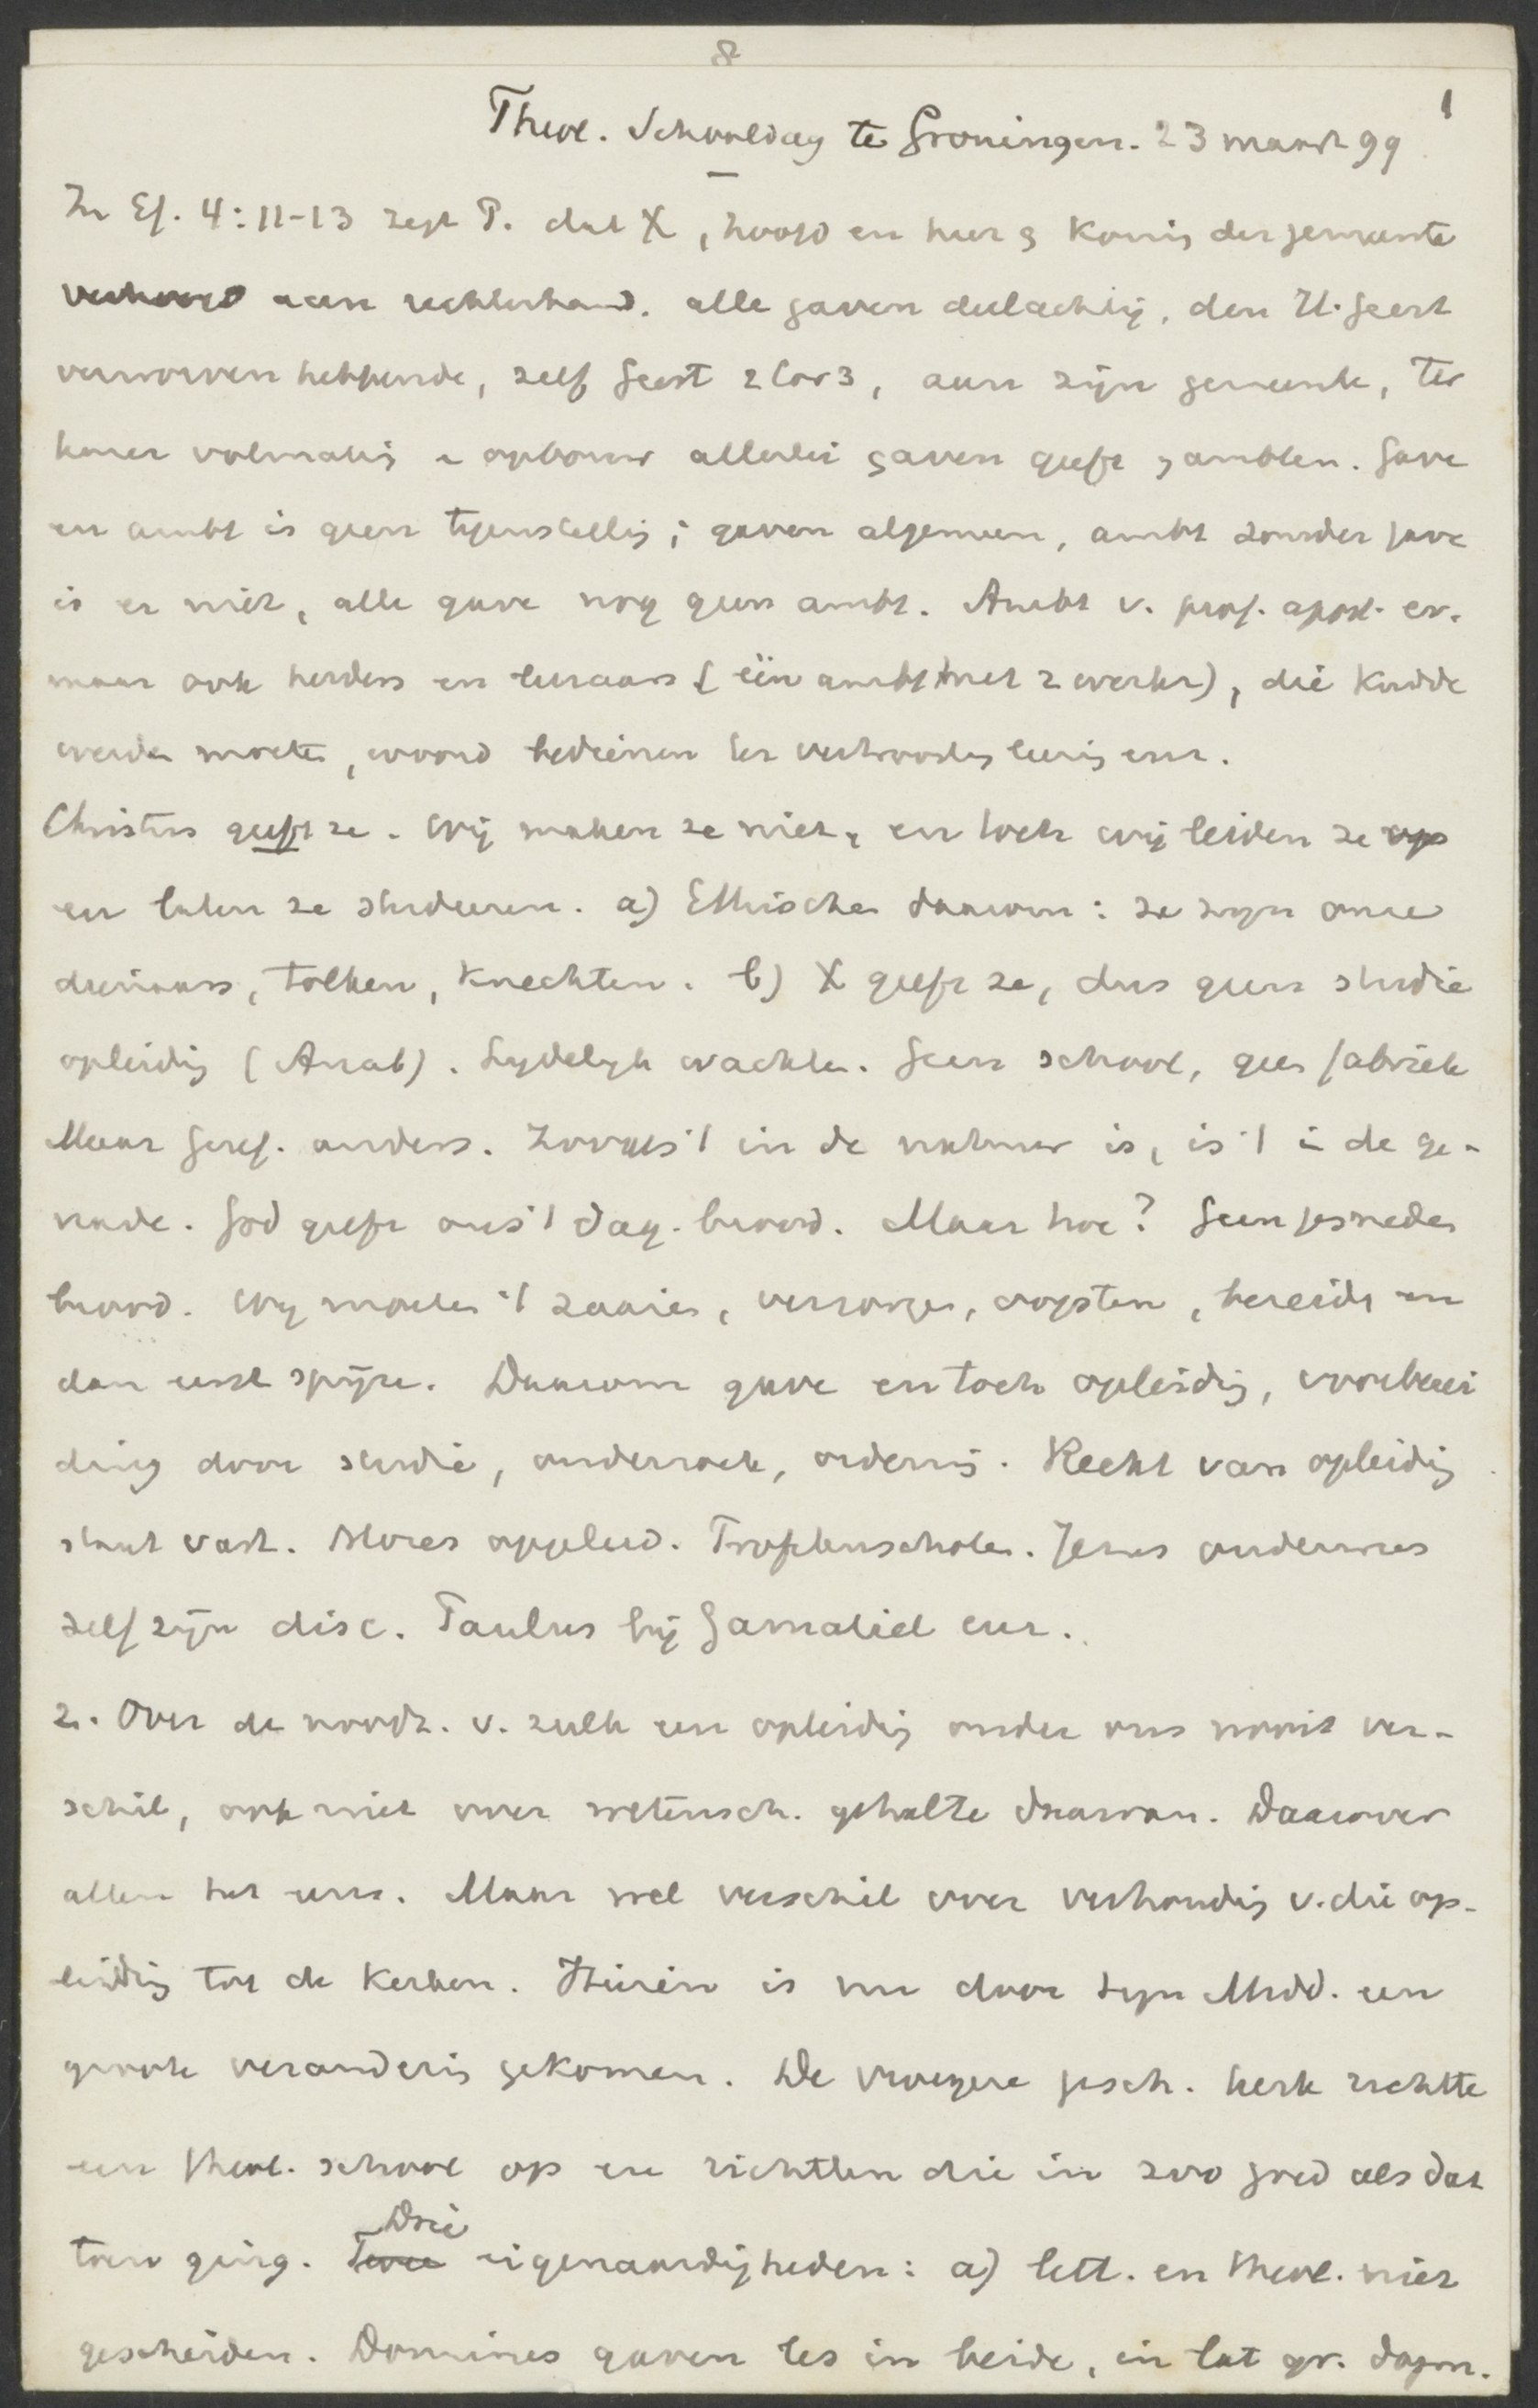 8
1
Theol. Schooldag te Groningen. 23 maart 99
In Ef. 4:11-13 zegt P. dat X, hoofd en heer & Konig der gemeente
verhoogd aan rechterhand. alle gaven deelachtig, den H. Geest
verworven hebbende, zelf Geest 2 Cor 3, aan zijn gemeente, ter
harer volmakig & opbouw allerlei gaven geeft & ambten. Gave
en ambt is geen tegenstellig; gaven algemeen, ambt zonder gave
is er niet, alle gave nog geen ambt. Ambt v. prof. apost. ev.
maar ook herders en leeraars (één ambt met 2 werke), die Kudde
weide moete, woord bedienen ter vertroostig leerig enz.
Christus geeft ze. Wij maken ze niet, en toch wij leiden ze op
en laten ze studeeren. a) Ethische daarom: ze zijn onze
dienaars, tolken, knechten. b) X geeft ze, dus geen studie
opleidig (Anab). Lydelyk wachte. Geen school, gee fabriek
Maar Geref. anders. Zooals 't in de natuur is, is 't i de ge-
nade. God geeft ons 't dag. brood. Maar hoe? Geen gesnede
brood. Wy moete 't zaaie, verzorge, oogsten, bereide en
dan eerst spijze. Daarom gave en toch opleidig, voorberei
ding door studie, onderzoek, oefenig. Recht van opleidig
staat vast. Mozes opgeleid. Profetenschole. Jezus onderwees
zelf zijn disc. Paulus bij Gamaliel enz.
2. Over de noodz. v. zulk een opleidig onder ons nooit ver-
schil, ook niet over wetensch. gehalte daarvan. Daarover
allen het eens. Maar wel verschil over verhoudig v. die op-
leidig tot de Kerken. Hierin is nu door Syn Midd. een
groote veranderig gekomen. De vroegere gesch. kerk richtte
een theol. school op en richtten die in zoo goed als dat
toen ging. Twee Drie eigenaardigheden: a) lett. en theol. niet
gescheiden. Domines gaven les in beide, in lat gr. dogm.